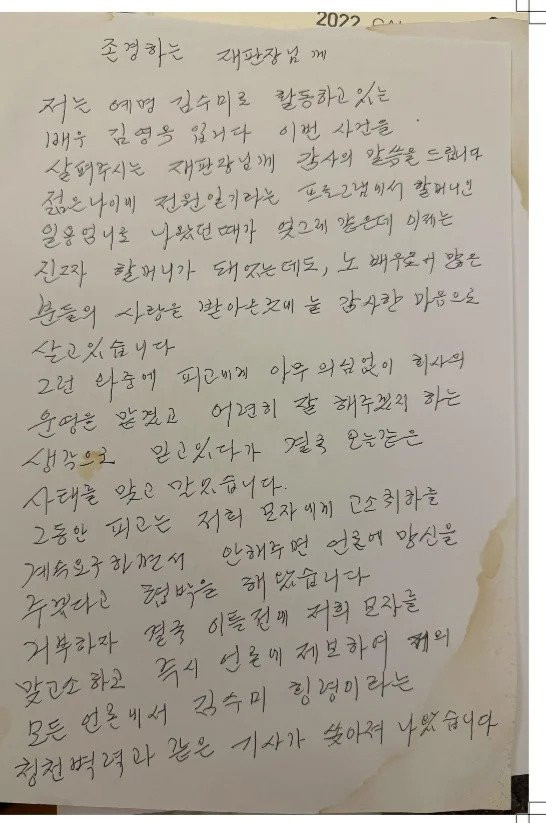 2022
존경하는 재판장님께
저는 예명 김수미로 활동하고 있는
배우 김영옥 입니다 이번 사건을
살펴주시는 재판장님께 감사의 말씀을 드립니다
젊은나이에 전원일기라는 프로그램에서 할머니인
일용엄니로 나왔던때가 엊그제 같은데 이제는
진짜 할머니가 돼었는데도, 노 배우로서 많은
분들의 사랑을 받아온것에 늘 감사한 마음으로
살고있습니다
그런 와중에 피고에게 아무 의심없이 회사의
운영을 맡겼고 어련히 잘 해주겠지 하는
생각으로 믿고있다가 결국 오늘같은
사태를 맞고 말았습니다.
그동안 피고는 저희 모자에게 고소취하를
계속요구하면서 안해주면 언론에 망신을
주겠다고 협박을 해 왔습니다
거부하자 결국 이틀전에 저희 모자를
맞고소하고 즉시 언론에 제보하여 거의
모든 언론에서 김수미 횡령이라는
청천벽력과 같은 기사가 쏟아져 나왔습니다